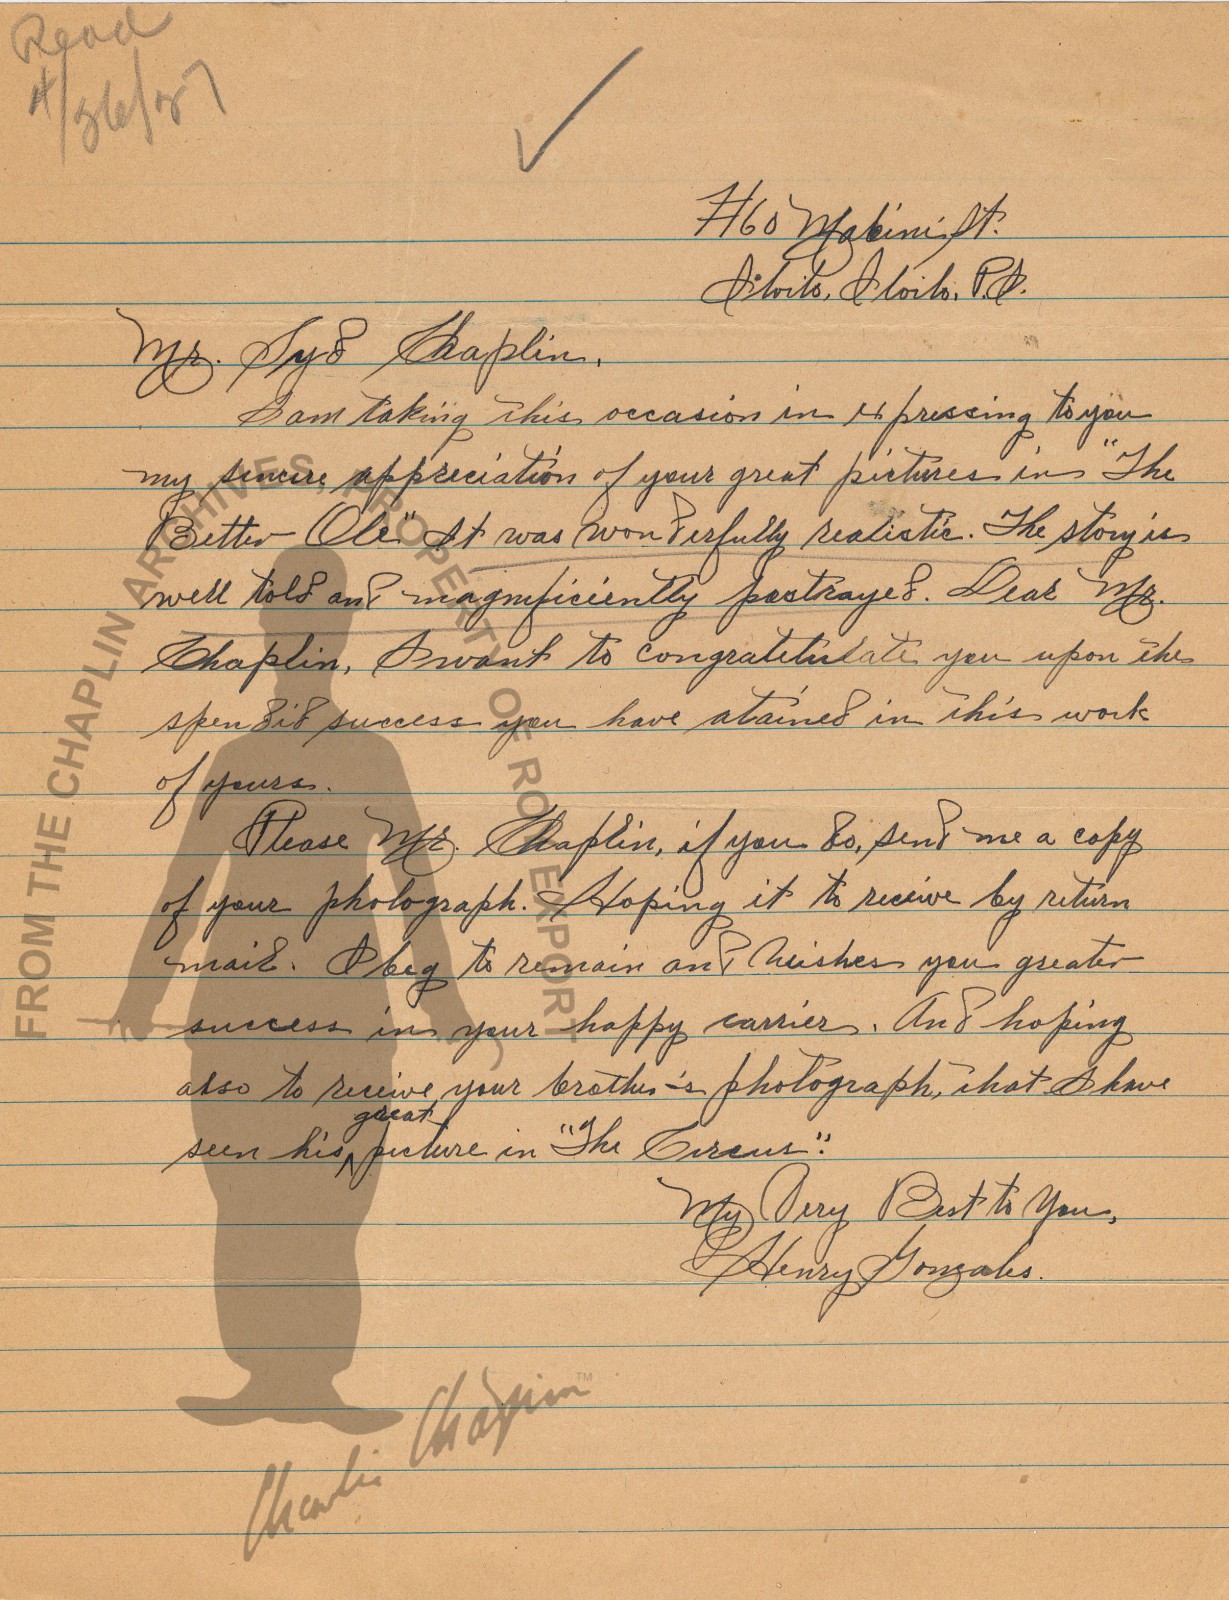 Read
4/26/27
#60 Mabini St.
Iloilo, Iloilo, P.I.
Mr. Syd Chaplin,
I am taking this occasion in expressing to you
my sincere appreciation of your great pictures in "The
Better Ole" It was wonderfully realistic. The story is
well told and magnificiently portrayed. Dear Mr.
Chaplin, I want to congratitulate you upon the
spendid success you have atained in this work
of yours.
Please Mr. Chaplin, if you do, send me a copy
of your photograph. Hoping it to receive by return
mail. I beg to remain and wishes you greater
success in your happy carrier. And hoping
also to receive your brother's photograph, that I have
seen his great picture in "The Circus".
My Very Best to You,
Henry Gonzales.
FROM THE CHAPLIN ARCHIVES, PROPERTY OF ROY EXPORT
Charlie Chaplin™